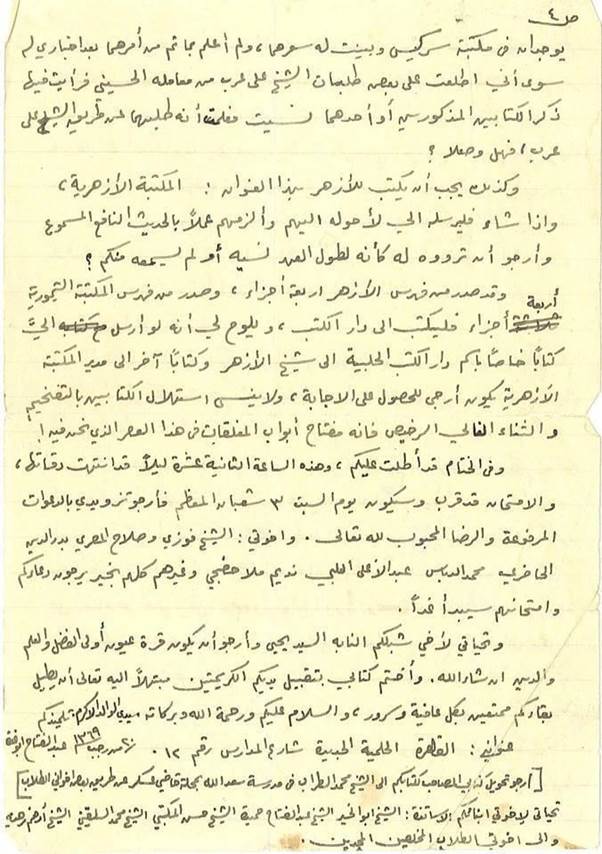 ص ٤
يوجدان في مكتبة سركيس وبينت له سعرهما، ولم أعلم بما تم من أمرهما بعد اخباري له
سوى أني اطلعت على بعض طلبات الشيخ علي عرب من معامله الحسيني فرأيت فيها
ذكر الكتابين المذكورين أو أحدهما نسيت فعلمت أنه طلبهما عن طريق الشيخ علي
عرب، فهل وصلا؟
وكذلك يجب أن يكتب للأزهر بهذا العنوان: المكتبة الأزهرية،
واذا شاء فليرسله الي لأحوله اليهم وألزمهم عملاً بالحديث النافع المسموع
وأرجو أن ترووه له كأنه لطول العهد نسيه أو لم يسمعه منكم؟
وقد صدر من فهرس الأزهر اربعة أجزاء، وصدر من فهرس المكتبة التيمورية
أربعة
أجزاء فليكتب الى دار الكتب، ويلوح لي أنه لو أرسل اليَّ
كتابًا خاصًا باسم دار الكتب الحلبية الى شيخ الأزهر وكتابًا آخر الى مدير المكتبة
الأزهرية يكون أرجى للحصول على الاجابة، ولا ينسى استهلال الكتابين بالتضخيم
والثناء الغالي الرخيص فانه مفتاح أبواب المغلقات في هذا العصر الذي نحن فيه!
وفي الختام قد أطلت عليكم، وهذه الساعة الثانية عشرة ليلاً قد انتهت دقاتها،
والامتحان قد قرب وسيكون يوم السبت ٣ شعبان المعظم فأرجو تزويدي بالدعوات
المرفوعة والرضا المحبوب لله تعالى. واخوتي: الشيخ فوزي وصلاح المصري بدر الدين
الحاضري محمد الدباس عبد الأعلى اللبي نديم ملاحفجي وغيرهم كلهم بخير يرجون دعاءكم
وامتحانهم سيبدأ غداً.
وتحياتي لأخي شبلكم النابه السيد يحيى وأرجو أن يكون قرة عيون أولي الفضل والعلم
والدين ان شاء الله. وأختم كتابي بتقبيل يديكم الكريمتين مبتهلاً اليه تعالى أن يطيل
بقاءكم ممتعين بكل عافية وسرور، والسلام عليكم ورحمة الله وبركاته سيدي الوالد الأكرم تلميذكم
عنواني: القاهرة الحلمية الجديدة شارع المدارس رقم ١٢. من رجب ١٣٦٩ عبد الفتاح ابو غدة
[أرجو تحويل كتابي المصاحب لكتابكم الى الشيخ محمد الطراب في مدرسة سعد الله بمحلة قاضي عسكر عن طريق بعض اخواني الطلاب]
تحياتي لاخوتي ابنائكم الاساتذة: الشيخ ابو الخير الشيخ عبد الفتاح حميدة الشيخ حسن المكتبي الشيخ محمد السلقيني الشيخ أدهم
والى اخوتي الطلاب المخلصين المجدين.